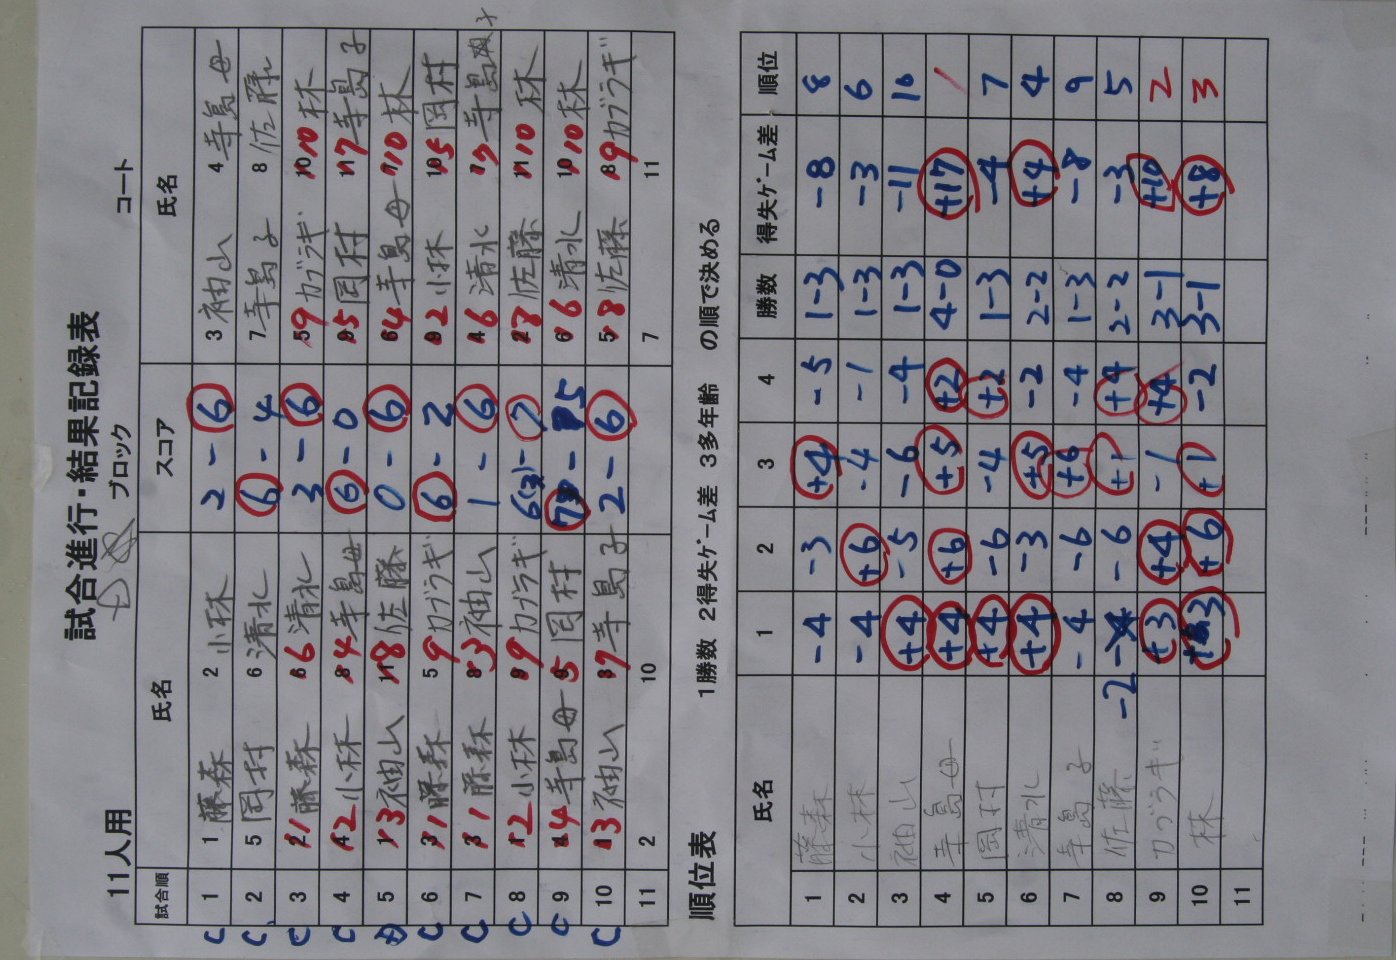 試合進行・結果記録表
11人用 D ブロック コート
試合順 氏名 スコア 氏名
C 1 1 藤森 2 小林 2 - 6 3 袖山 4 寺島母
C 2 5 岡村 6 清水 6 - 4 7 寺島子 8 佐藤
C 3 1 藤森 6 清水 3 - 6 9 カブラギ 10 林
C 4 2 小林 4 寺島母 6 - 0 5 岡村 7 寺島子
D 5 3 袖山 8 佐藤 0 - 6 4 寺島母 10 林
C 6 1 藤森 9 カブラギ 6 - 2 2 小林 5 岡村
C 7 1 藤森 3 袖山 1 - 6 6 清水 7 寺島子
C 8 2 小林 9 カブラギ 6(3) - 7 8 佐藤 10 林
C 9 4 寺島母 5 岡村 7 - 5 6 清水 10 林
C 10 3 袖山 7 寺島子 2 - 6 8 佐藤 9 カブラギ
11 2 10 7 11
順位表 1勝数 2得失ゲーム差 3多年齢 の順で決める
氏名 1 2 3 4 勝数 得失ゲーム差 順位
1 藤森 -4 -3 +4 -5 1-3 -8 8
2 小林 -4 +6 -4 -1 1-3 -3 6
3 袖山 +4 -5 -6 -4 1-3 -11 10
4 寺島母 +4 +6 +5 +2 4-0 +17 1
5 岡村 +4 -6 -4 +2 1-3 -4 7
6 清水 +4 -3 +5 -2 2-2 +4 4
7 寺島子 -4 -6 +6 -4 1-3 -8 9
8 佐藤 -2 -6 +1 +4 2-2 -3 5
9 カブラギ +3 +4 -1 +4 3-1 +10 2
10 林 +3 +6 +1 -2 3-1 +8 3
11